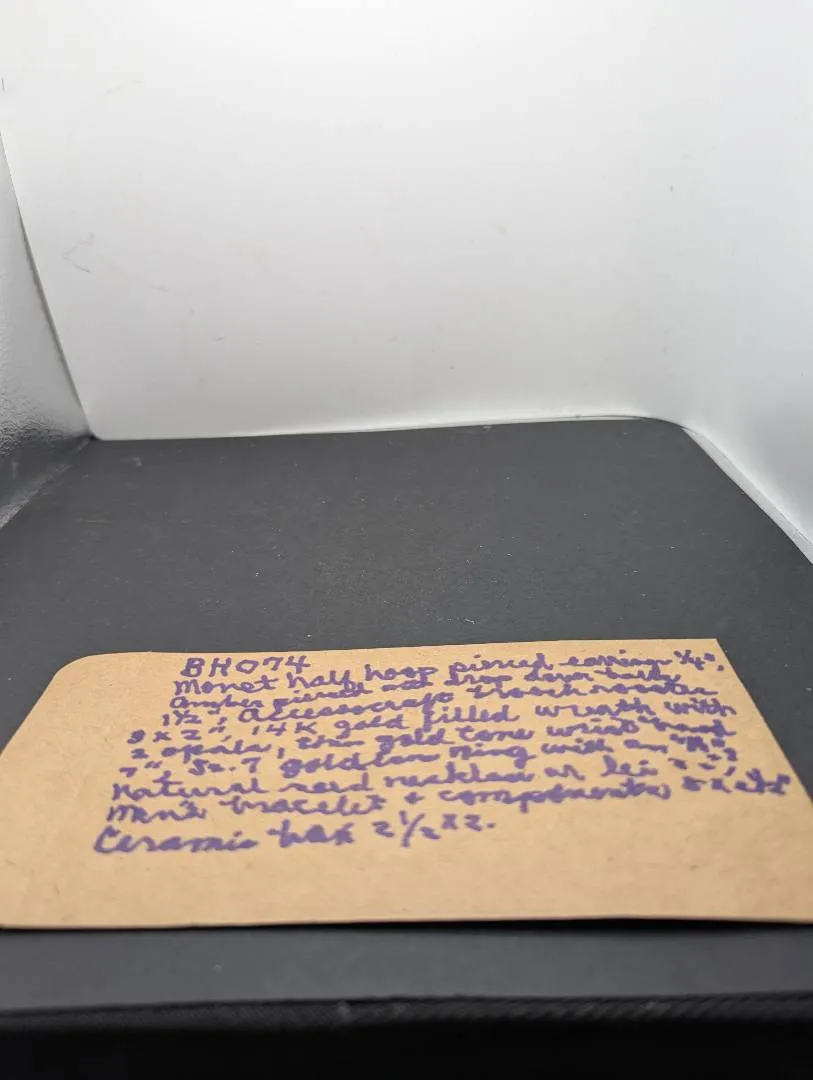 BH074
Monet half hoop pierced earrings 3/4",
Amber pierced and drop down
1 1/2", Accessocraft brooch rooster
3 x 2", 14K gold filled wreath with
2 opals, thin gold tone wrist band
7" Sz. 7 goldtone ring with an "A",
Natural seed necklace or lei
Men's bracelet + components
Ceramic box 2 1/2 x 2.